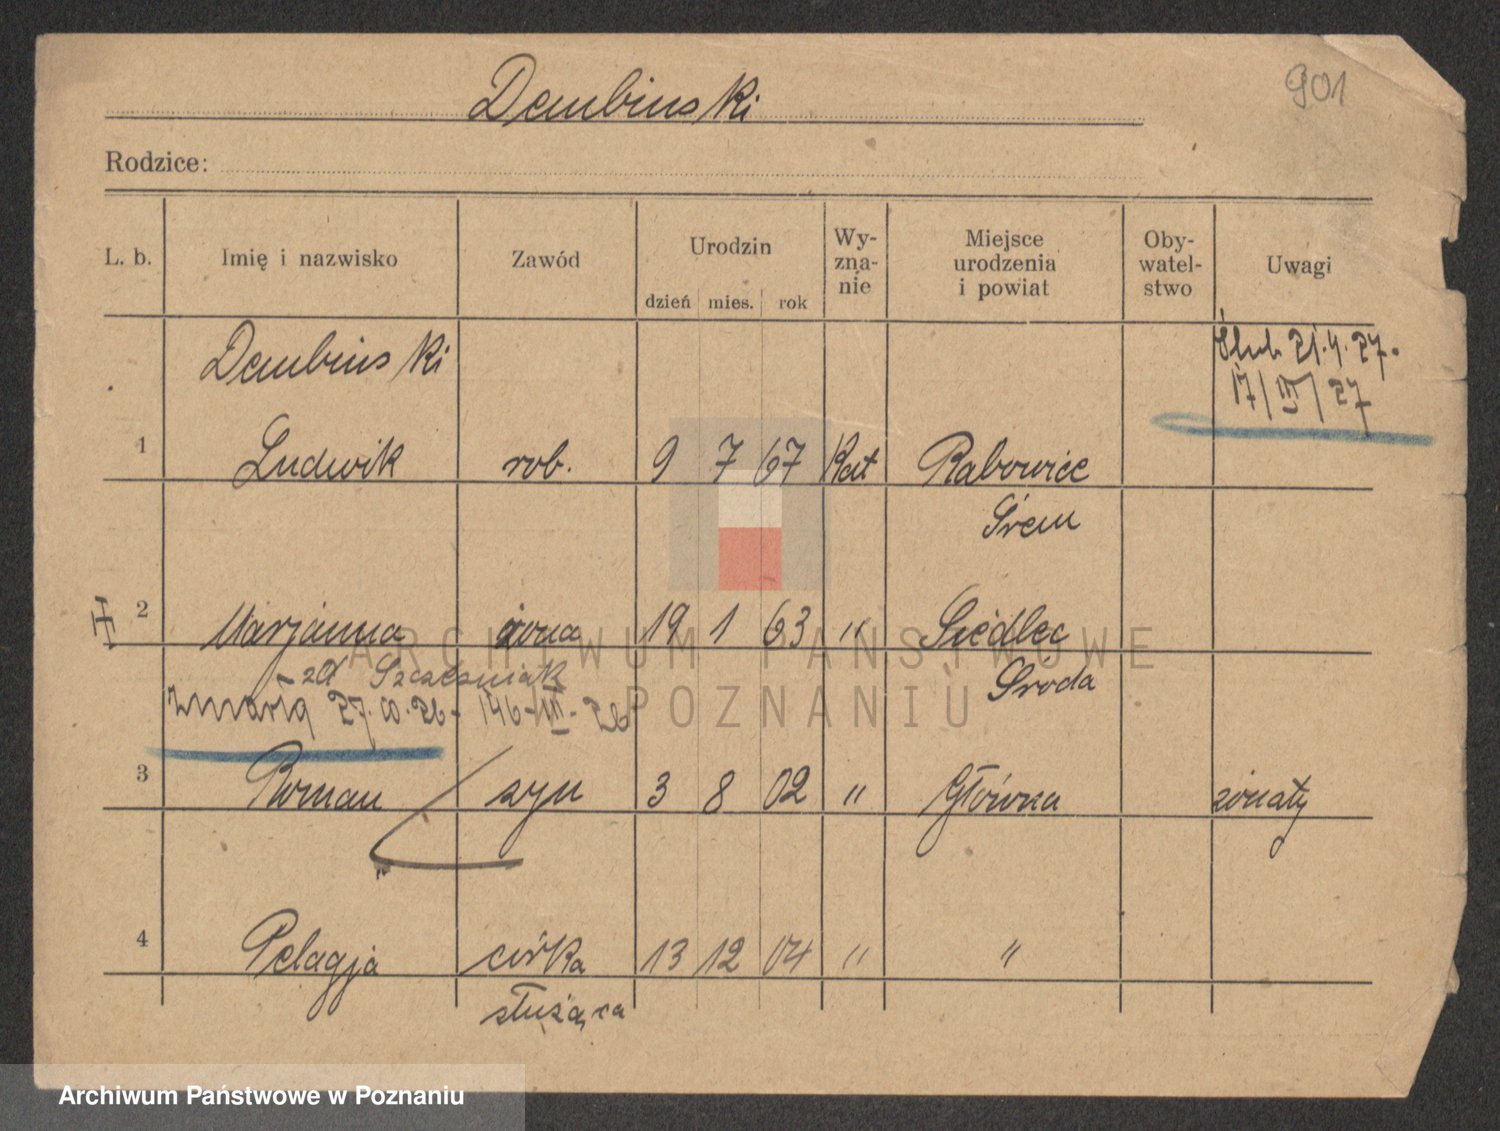 901
Dembinski
Rodzice:
L. b. Imię i nazwisko Zawód Urodzin Wy-zna-nie Miejsce urodzenia i powiat Oby-watel-stwo Uwagi
dzień mies. rok
Dembinski Ślub 21.4.27.
17/III/27
1 Ludwik rob. 9 7 67 Kat Rabowice
Śrem
2 Marjanna żona 19 1 63 " Siedlec
zd Szcześniak Środa
zmarła 146-III-26
3 Roman syn 3 8 02 " Główna żonaty
4 Pelagja córka 13 12 04 " "
służąca
ARCHIWUM PAŃSTWOWE
POZNANIU
Archiwum Państwowe w Poznaniu